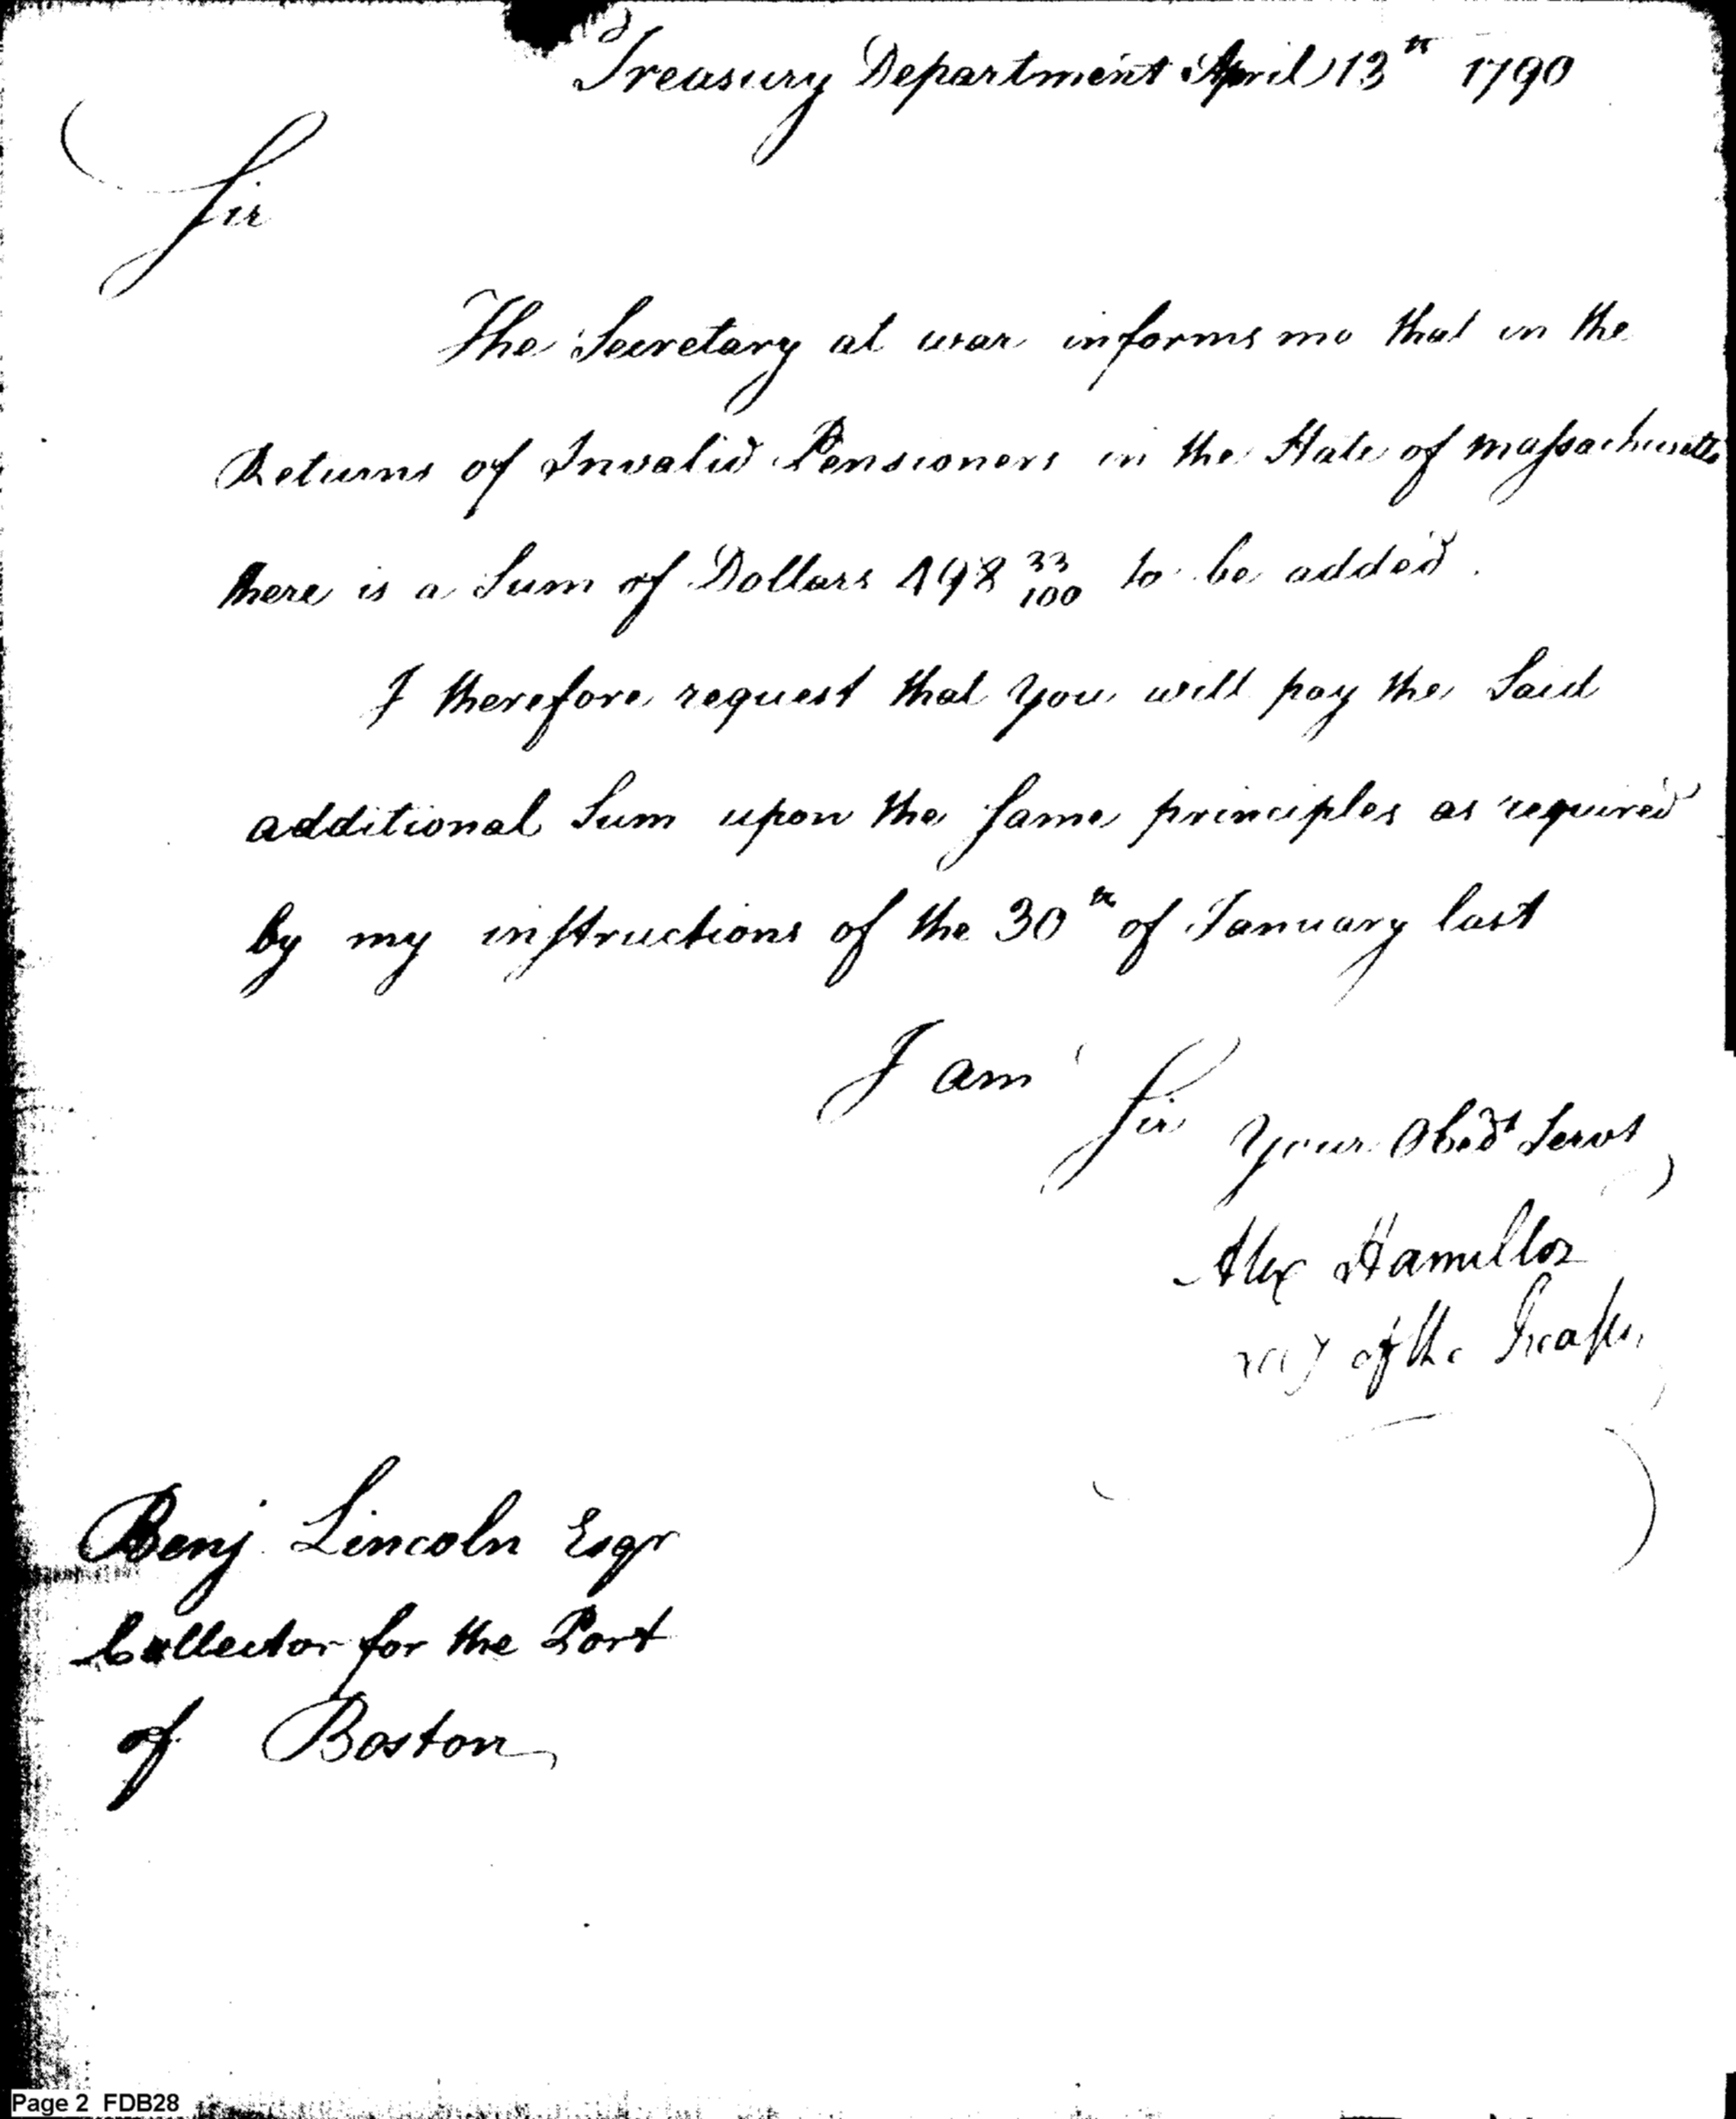 Treasury Department April 13th 1790
Sir
The Secretary at war informs me that in the
Returns of Invalid Pensioners in the State of Massachusetts
there is a Sum of Dollars 498 33/100 to be added.
I therefore request that you will pay the Said
additional Sum upon the same principles as required
by my instructions of the 30th of January last
I am
Sir Your Obedt Servt
Alex Hamilton
of the Treasy
Benj Lincoln Esqr
Collector for the Port
of Boston
Page 2 FDB28